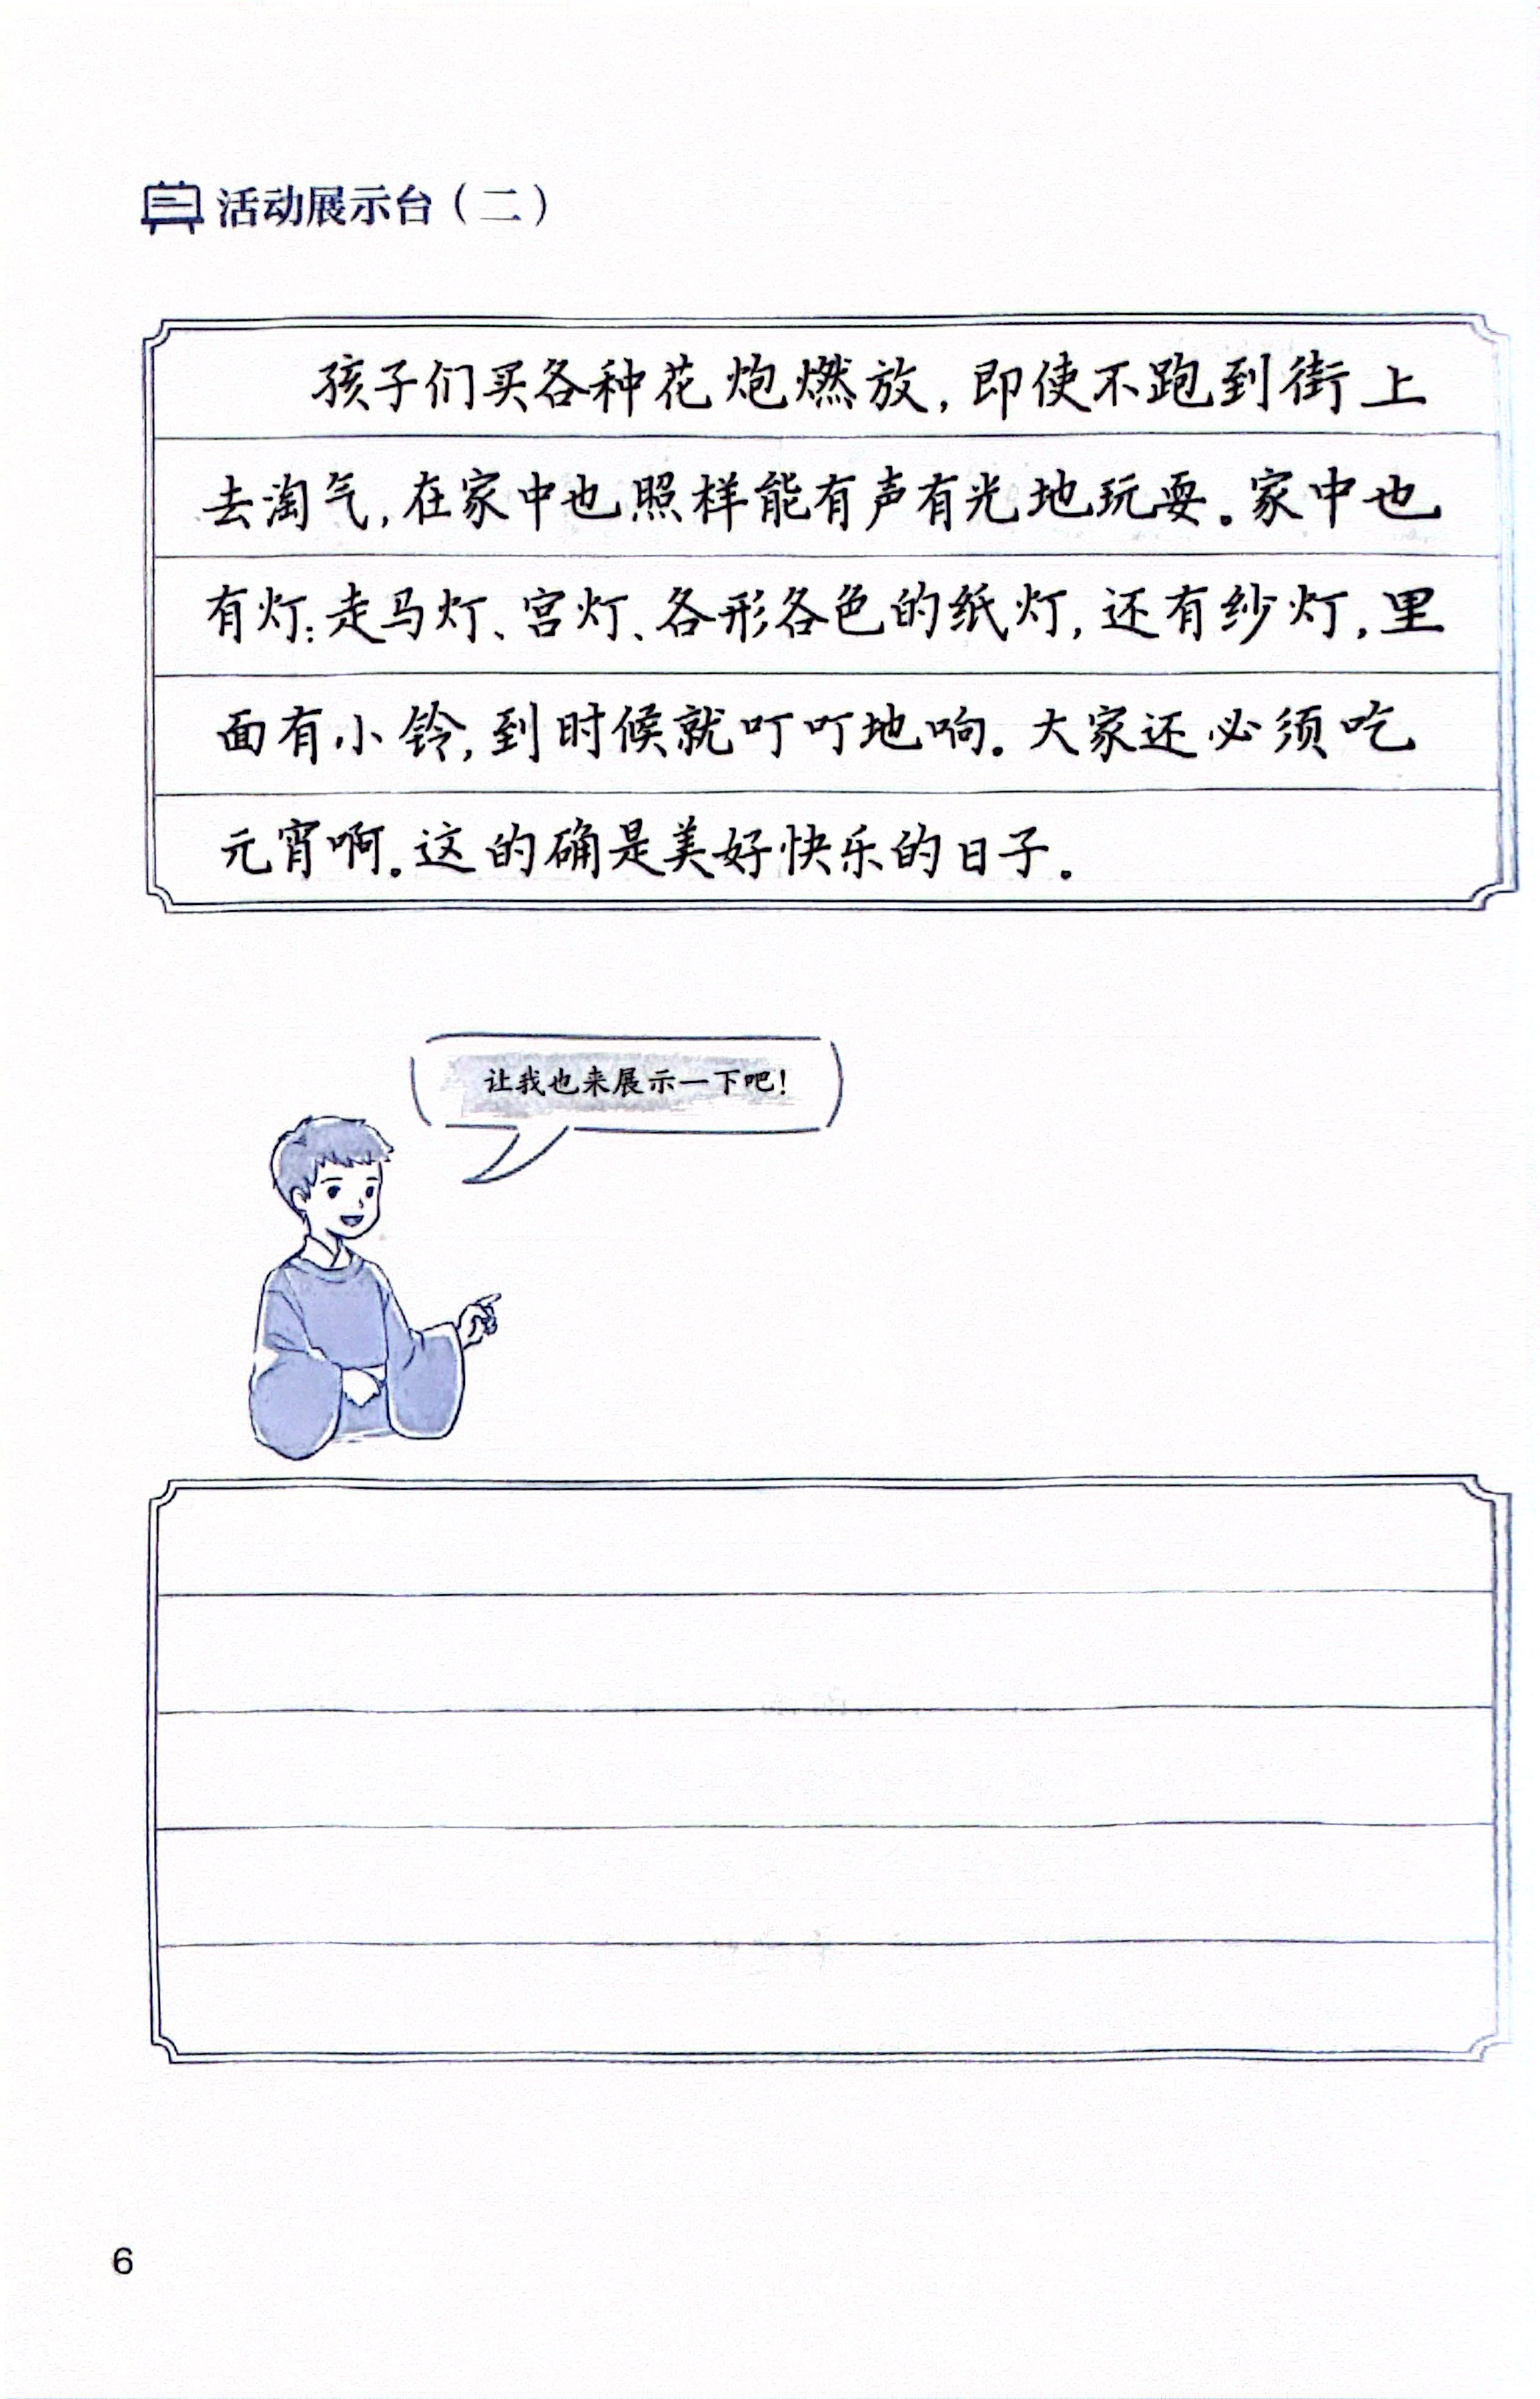 活动展示台（二）
孩子们买各种花炮燃放，即使不跑到街上
去淘气，在家中也照样能有声有光地玩耍。家中也
有灯：走马灯、宫灯、各形各色的纸灯，还有纱灯，里
面有小铃，到时候就叮叮地响。大家还必须吃
元宵啊。这的确是美好快乐的日子。
让我也来展示一下吧！
6